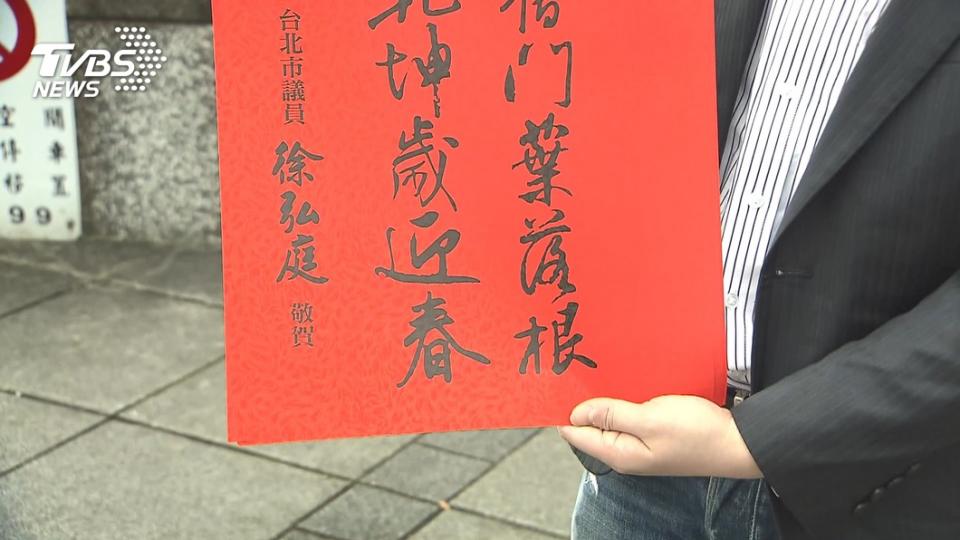 TVBS
NEWS
空間
停車
移置
99
門葉落根
坤歲迎春
台北市議員 徐弘庭 敬賀